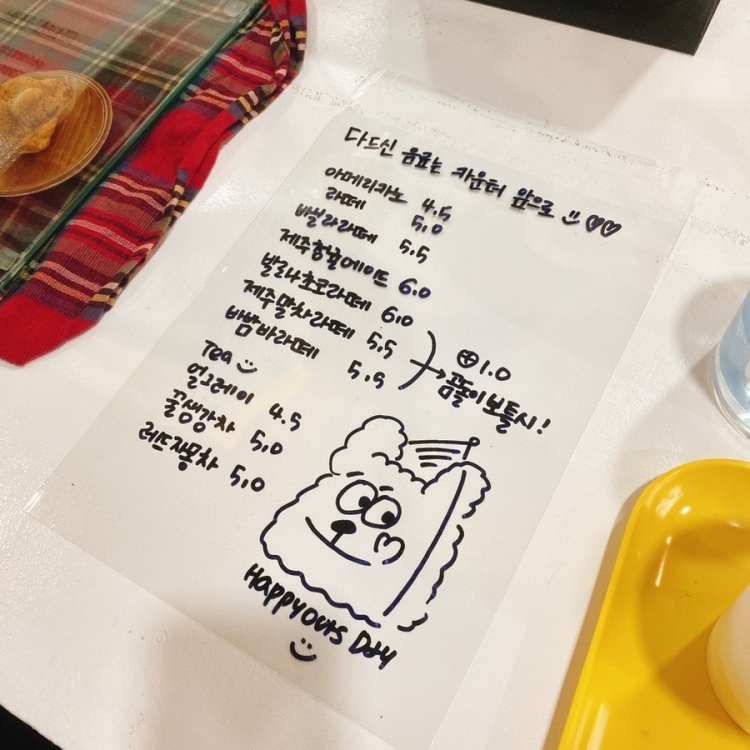 다드신 음료는 카운터 앞으로
아메리카노 4.5
라떼 5.0
바닐라라떼 5.5
제주청귤에이드 6.0
발로나초코라떼 6.0
제주말차라떼 5.5
바밤바라떼 5.5
⊕1.0
곰돌이보틀시!
Tea
얼그레이 4.5
꿀생강차 5.0
레드자몽차 5.0
Happyours Day